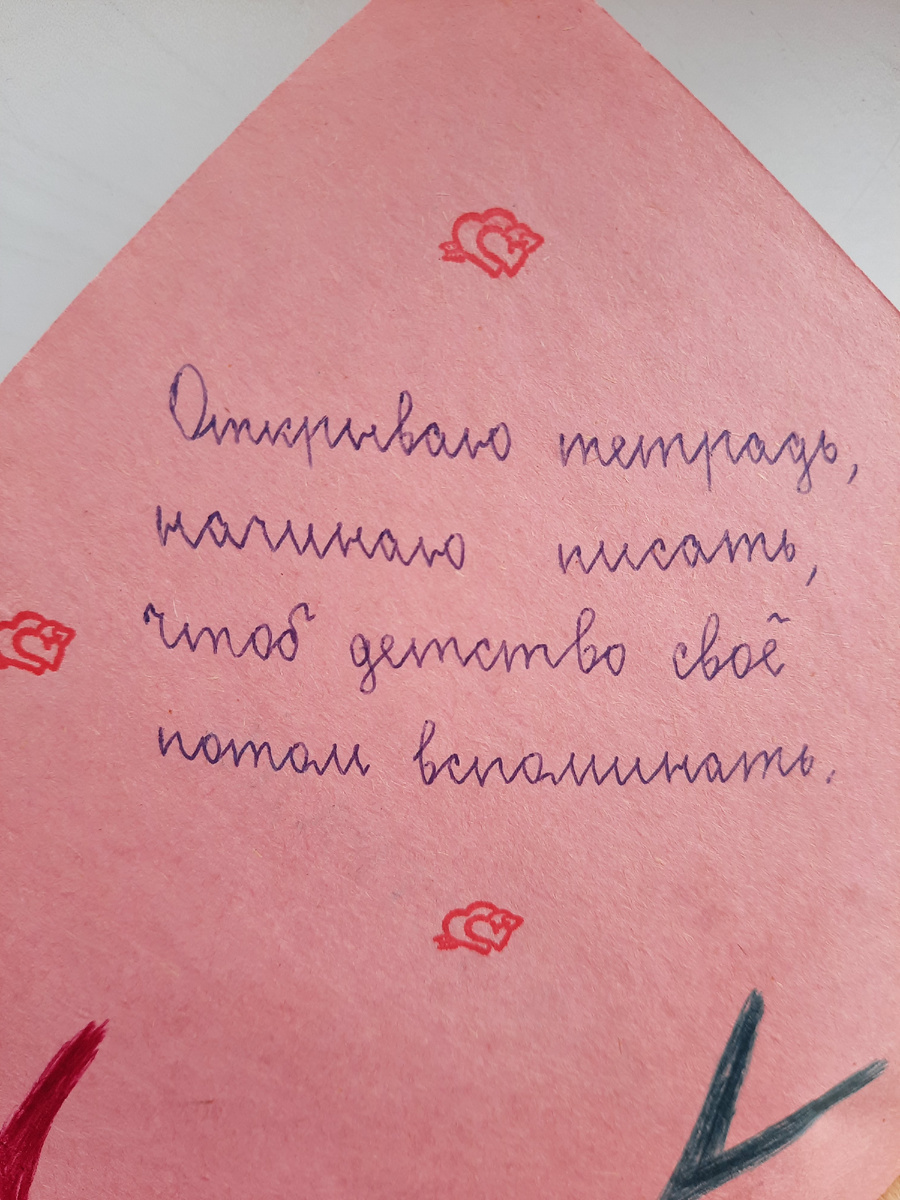 Открываю тетрадь,
начинаю писать,
чтоб детство своё
потом вспоминать.